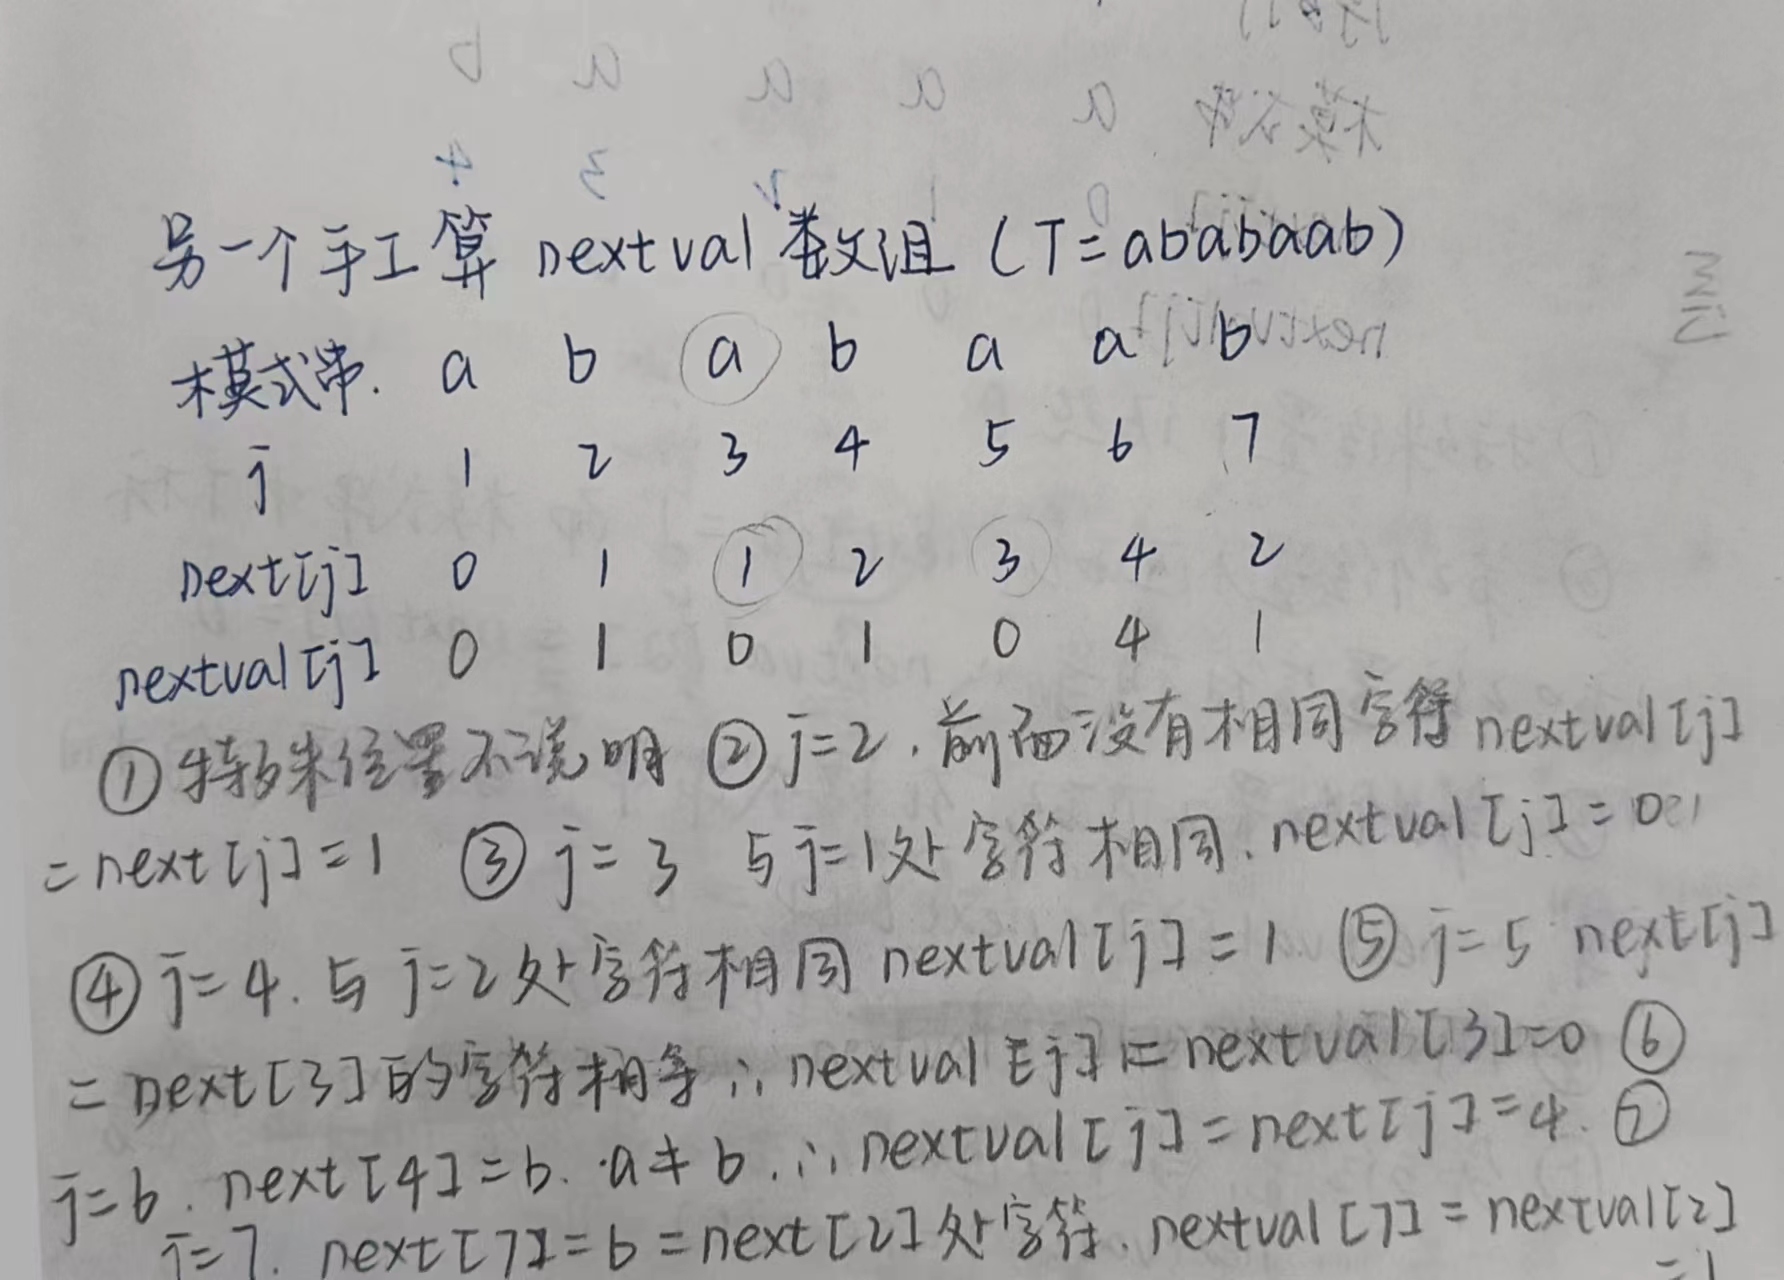 另一个手工算 nextval 数组 (T=ababaab)
模式串. a b a b a a b
j 1 2 3 4 5 6 7
next[j] 0 1 1 2 3 4 2
nextval[j] 0 1 0 1 0 4 1
① 特殊位置不说明 ② j=2, 前面没有相同字符 nextval[j]
= next[j]=1 ③ j=3 与j=1处字符相同, nextval[j]=0
④ j=4. 与 j=2处字符相同 nextval[j]=1 ⑤ j=5 next[j]
= next[3]的字符相等 ∴ nextval[j]=nextval[3]=0 ⑥
j=6. next[4]=b. a≠b. ∴ nextval[j]=next[j]=4. ⑦
j=7. next[7]=b=next[2]处字符. nextval[7]=nextval[2]
=1